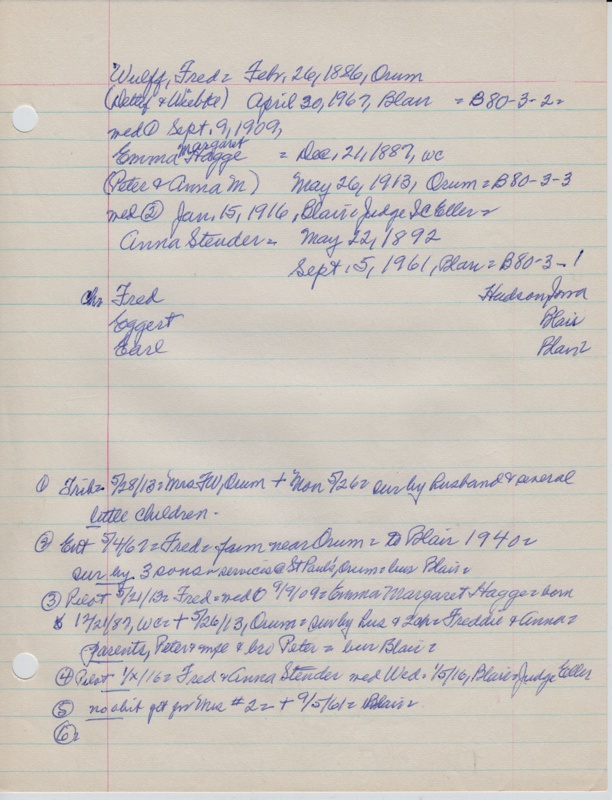 Wulff, Fred = Febr. 26, 1886, Orum
(Detlef & Wiebke) April 20, 1967, Blair = B80-3-2=
med ① Sept. 9, 1909,
margaret
Emma Hagge = Dec, 21, 1887, wc
(Peter & Anna M.) May 26, 1913, Orum = B80-3-3
med ② Jan. 15, 1916, Blair = Judge Eller =
Anna Stender = May 22, 1892
Sept. 5, 1961, Blair = B80-3-1
Chr Fred Hudson, Iowa
Eggert Blair
Earl Blair
① Trib = 5/28/13 = Mrs FW, Orum + Mon 5/26 = sur by husband & several
little children.
② Ent 5/4/67 = Fred = farm near Orum = to Blair 1940 =
sur by 3 sons = services @ St Paul's, Orum = bur Blair =
③ Pilot 5/21/13 = Fred = med ① 9/9/09 = Emma Margaret Hagge = born
12/21/87, wc = + 5/26/13, Orum = sur by hus & 2 ch = Freddie & Anna =
parents, Peter & wife & bro Peter = bur Blair =
④ Pilot 1/x/16 = Fred & Anna Stender med Wed. 1/5/16, Blair = Judge Eller
⑤ no obit get for Mrs #2 = + 9/5/61 = Blair =
⑥ =